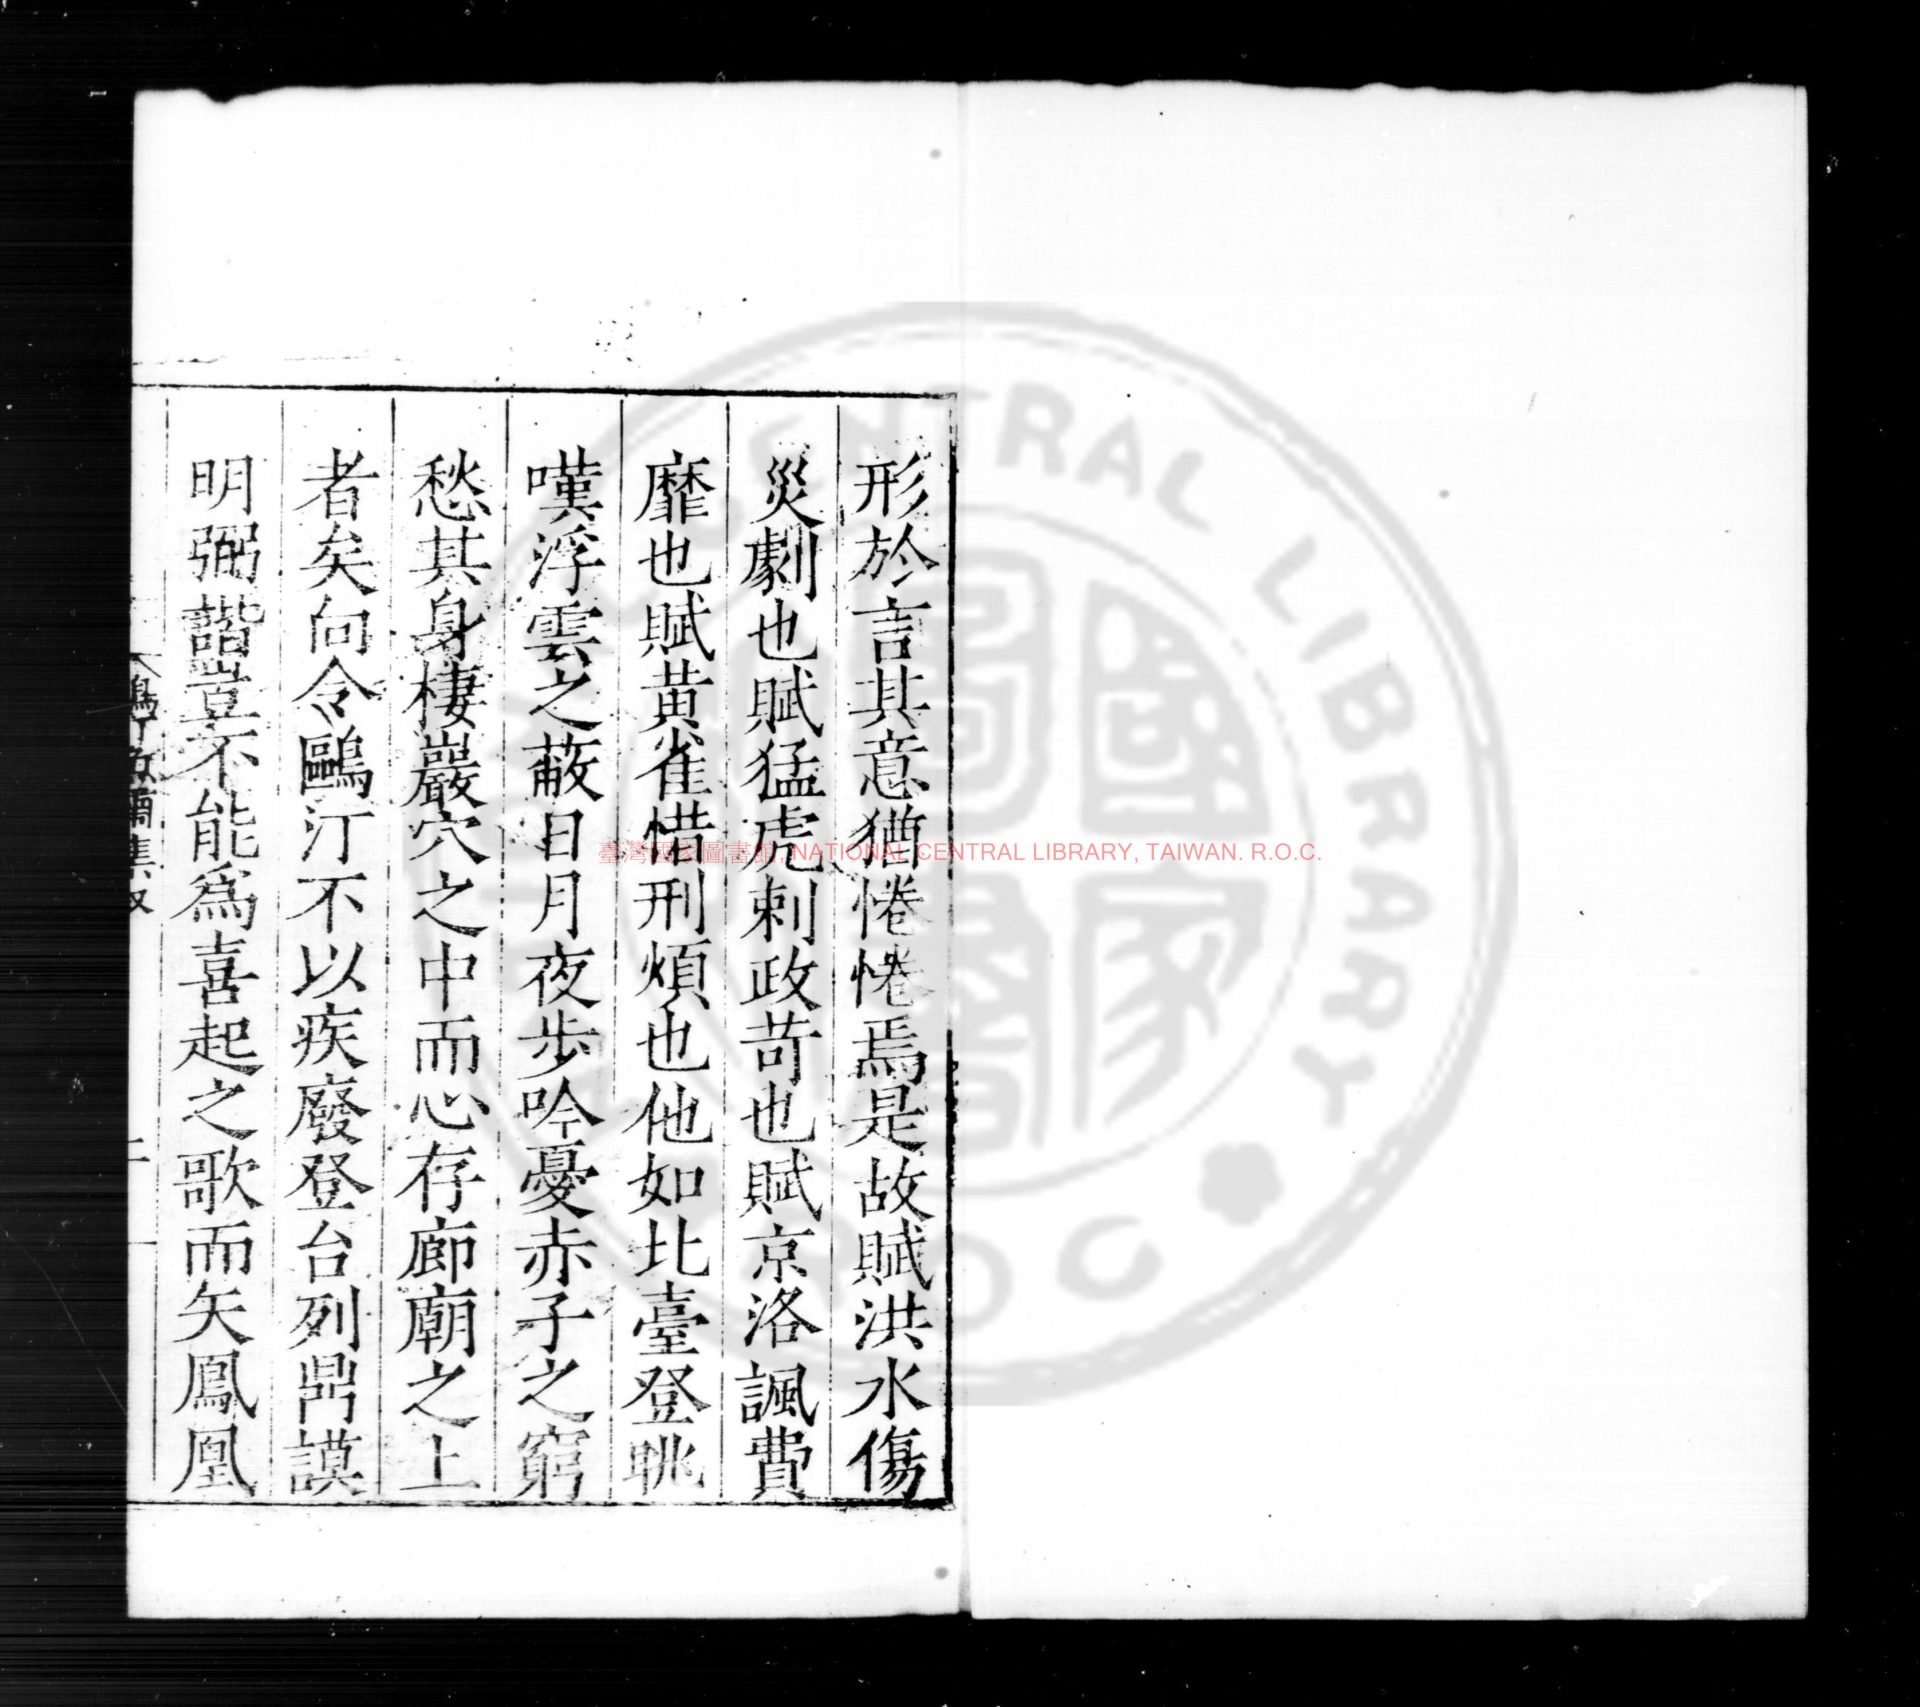 形於言其意猶惓惓焉是故賦洪水傷
災劇也賦猛虎刺政苛也賦京洛諷費
靡也賦黃雀惜刑煩也他如北臺登眺
嘆浮雲之蔽日月夜步吟憂赤子之窮
愁其身棲巖穴之中而心存廊廟之上
者矣向令鷗汀不以疾廢登台列鼎謨
明弼諧豈不能為喜起之歌而矢鳳凰
臺灣國家圖書館, NATIONAL CENTRAL LIBRARY, TAIWAN. R.O.C.